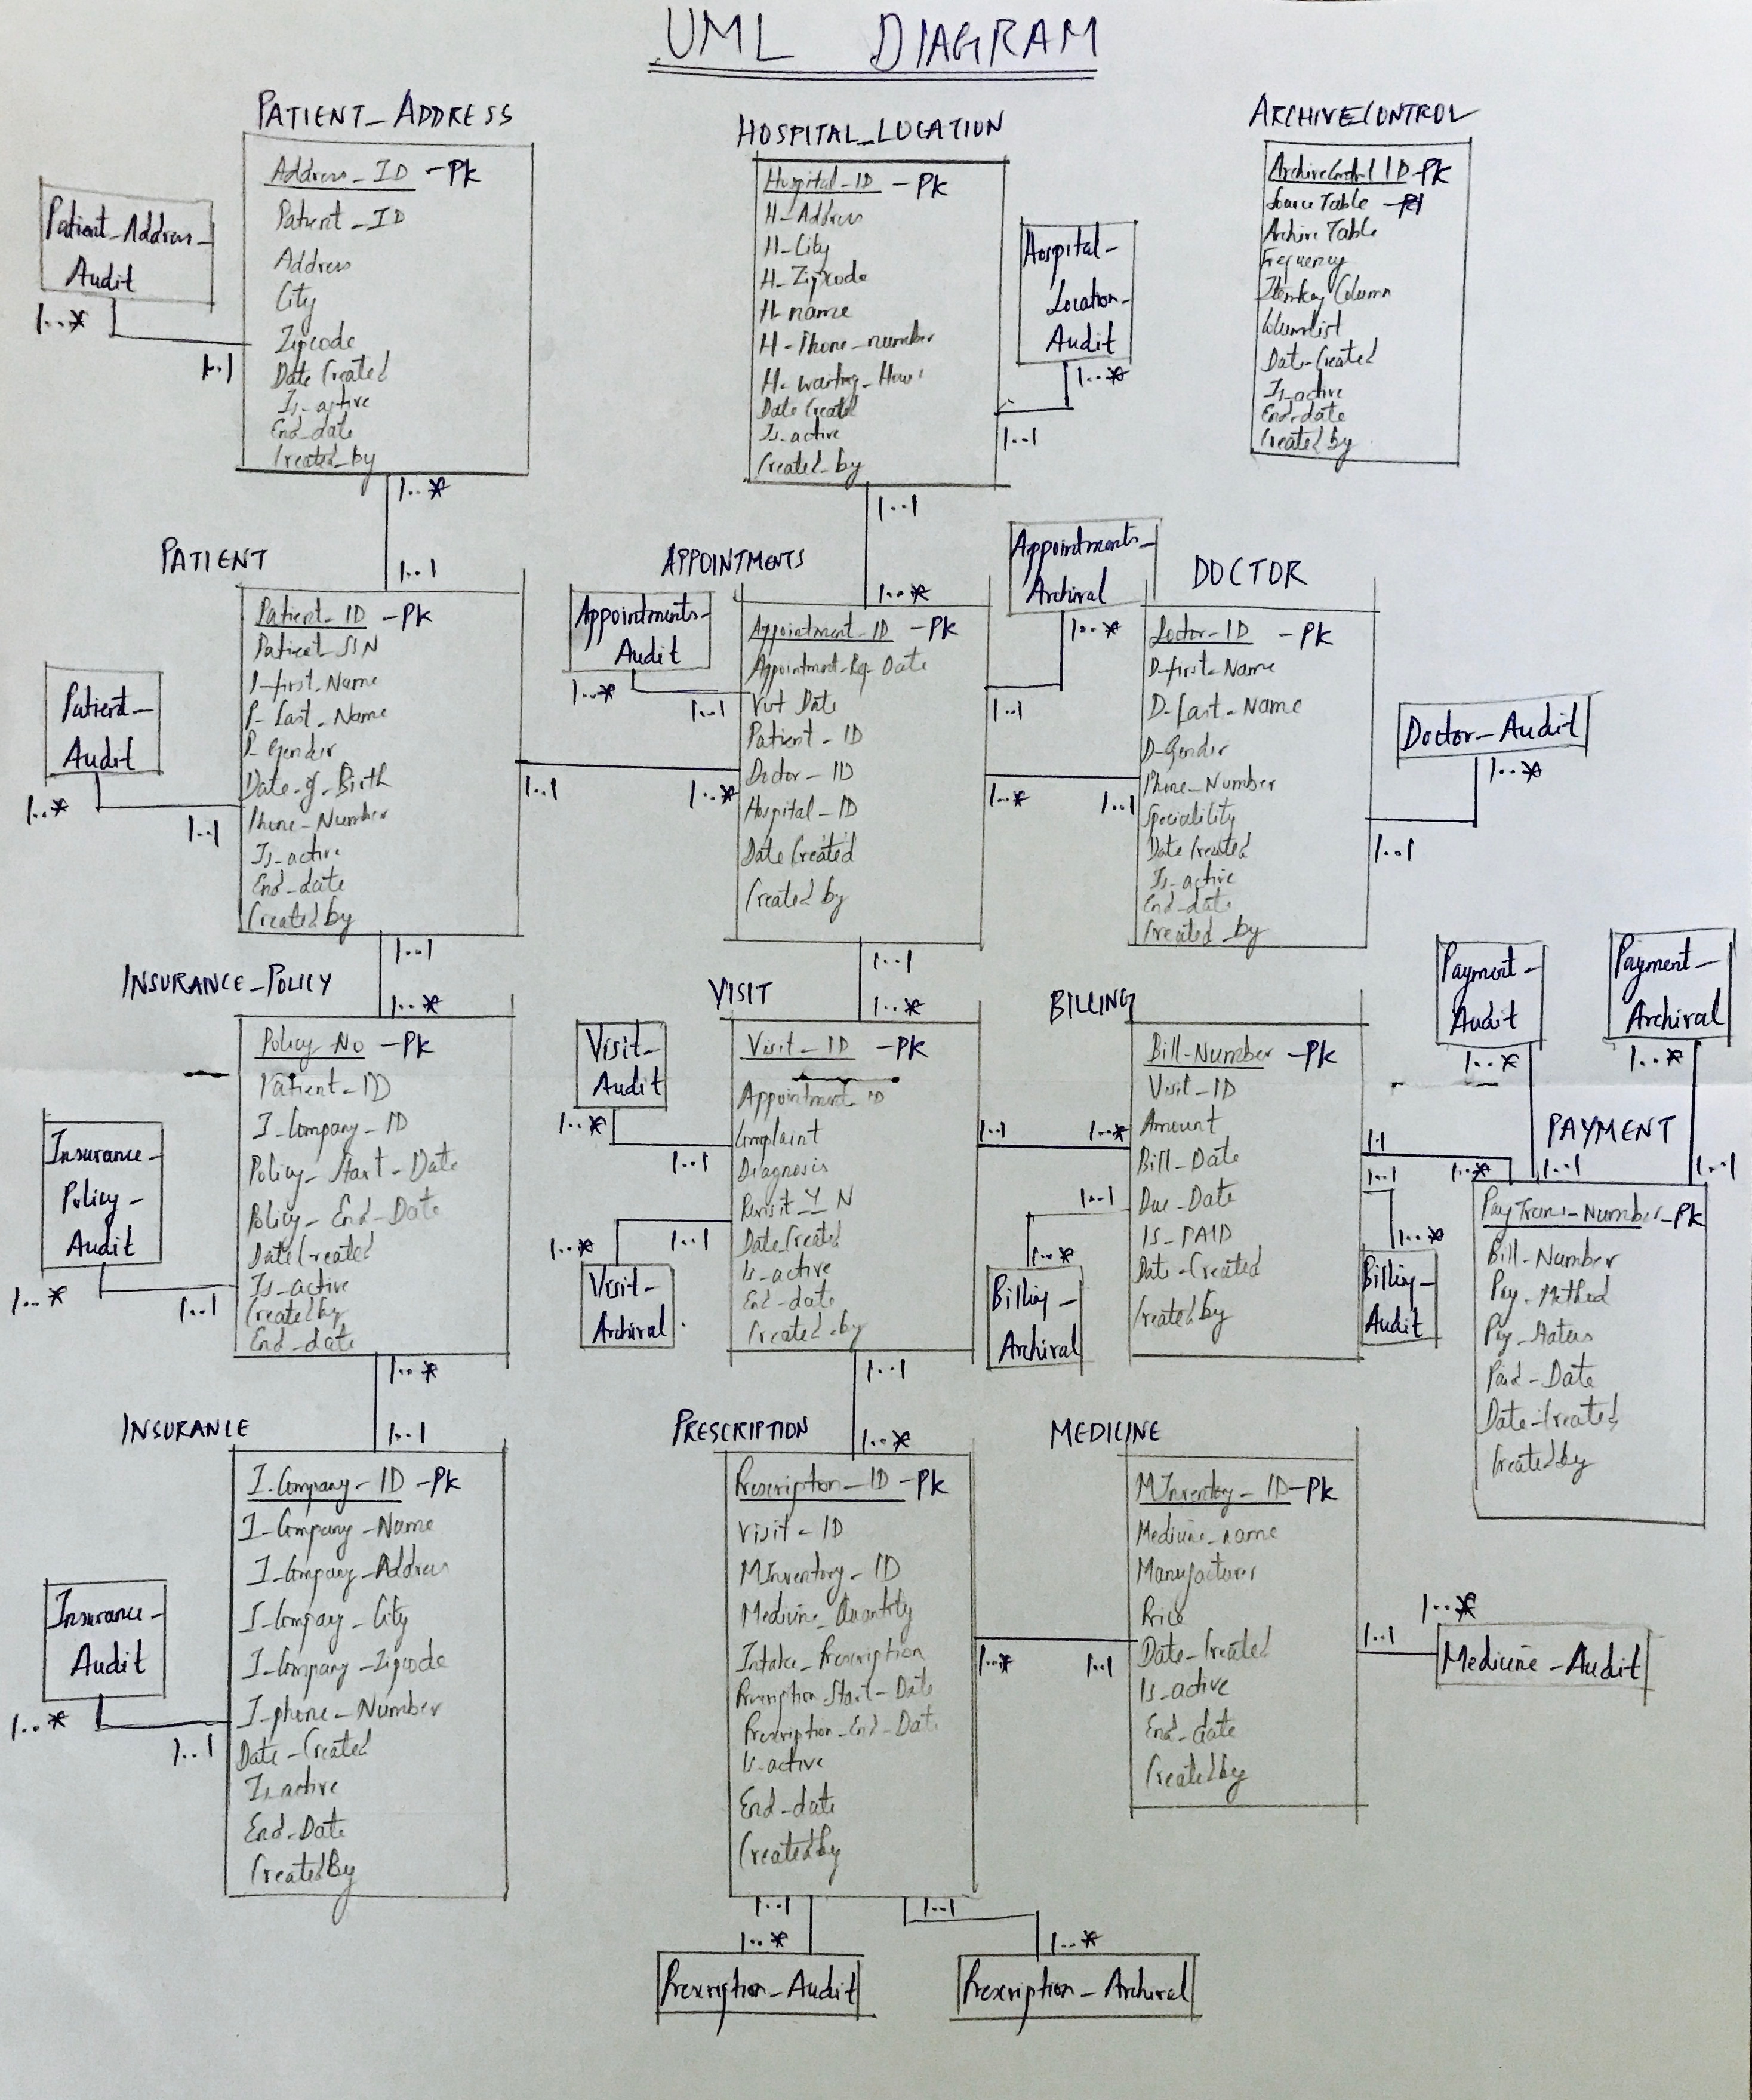 UML DIAGRAM
PATIENT_ADDRESS
Address_ID -PK
Patient_ID
Address
City
Zipcode
Date Created
Is_active
End_date
Created_by
Patient_Address_
Audit
1..*
1..1
HOSPITAL_LOCATION
Hospital_ID -PK
H_Address
H_City
H_Zipcode
H_name
H_Phone_number
Date Created
Is_active
Created_by
Hospital_
Location_
Audit
1..*
1..1
ARCHIVECONTROL
ArchiveControl ID-PK
Source Table
Archive Table
Frequency
Column
Date_Created
Is_active
End_date
Created by
1..*
1..1
1..1
1..*
PATIENT
Patient_ID -PK
Patient_SSN
P_first_Name
P_Last_Name
P_Gender
Date_of_Birth
Phone_Number
Is_active
End_date
Created by
Patient_
Audit
1..*
1..1
APPOINTMENTS
Appointment_ID -PK
Appointment_Req_Date
Visit Date
Patient_ID
Doctor_ID
Hospital_ID
Date Created
Created by
Appointments_
Audit
1..*
1..1
Appointments_
Archival
1..*
1..1
1..1
1..*
1..*
1..1
DOCTOR
Doctor_ID -PK
D_first_Name
D_Last_Name
D_Gender
Phone_Number
Speciality
Date Created
Is_active
End_date
Created_by
Doctor_Audit
1..*
1..1
1..1
1..*
1..1
1..*
INSURANCE_POLICY
Policy_No -PK
Patient_ID
I_Company_ID
Policy_Start_Date
Policy_End_Date
Date Created
Is_active
Created by
End_date
Insurance_
Policy_
Audit
1..*
1..1
VISIT
Visit_ID -PK
Appointment_ID
Complaint
Diagnosis
Revisit_Y_N
Date_Created
Is_active
End_date
Created_by
Visit_
Audit
1..*
1..1
1..*
1..1
Visit_
Archival
1..1
1..*
BILLING
Bill_Number -PK
Visit_ID
Amount
Bill_Date
Due_Date
IS_PAID
Date_Created
Created by
1..1
1..*
Billing_
Archival
1..1
1..*
Billing_
Audit
Payment_
Audit
1..*
1..1
Payment_
Archival
1..*
1..1
1.1
1..*
PAYMENT
PayTrans_Number_PK
Bill_Number
Pay_Method
Pay_Status
Paid_Date
Date_Created
Created by
1..*
1..1
1..1
1..*
INSURANCE
I_Company_ID -PK
I_Company_Name
I_Company_Address
I_Company_City
I_Company_Zipcode
I_phone_Number
Date_Created
Is_active
End_Date
CreatedBy
Insurance_
Audit
1..*
1..1
PRESCRIPTION
Prescription_ID -PK
Visit_ID
MInventory_ID
Medicine_Quantity
Intake_Prescription
Prescription_Start_Date
Prescription_End_Date
Is_active
End_date
Created by
1..*
1..1
MEDICINE
MInventory_ID-PK
Medicine_name
Manufacturer
Price
Date_Created
Is_active
End_date
Created by
1..1
1..*
Medicine_Audit
1..1
1..*
Prescription_Audit
1..1
1..*
Prescription_Archival